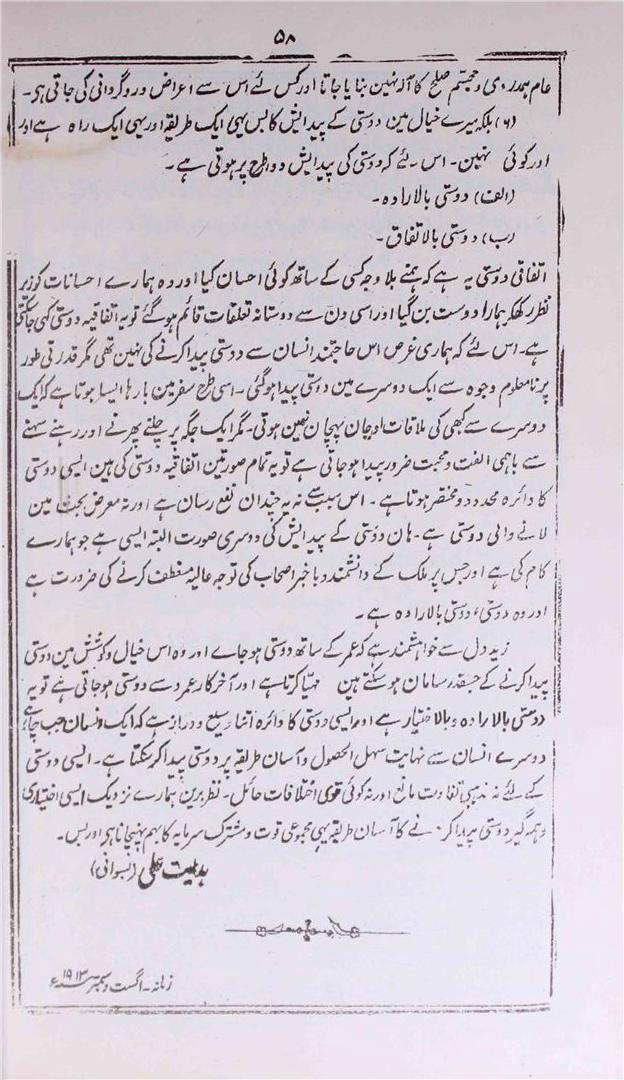 ۵۸
عام ہمدردی و مجسم صلح کا آلہ نہین بنایا جاتا اور کس لئے اس سے اعراض و روگردانی کی جاتی ہو۔
(۶) بلکہ میرے خیال مین دوستی کے پیدایش کا بس یہی ایک طریقہ اور یہی ایک راہ ہے اور
اور کوئی نہین۔ اس لئے کہ دوستی کی پیدایش دو طرح پر ہوتی ہے۔
(الف) دوستی بالارادہ۔
(ب) دوستی بالاتفاق۔
اتفاقی دوستی یہ ہے کہ ہمنے بلا وجہ کسی کے ساتھ کوئی احسان کیا اور وہ ہمارے احسانات کو زیر
نظر رکھکر ہمارا دوست بن گیا اور اسی دن سے دوستانہ تعلقات قائم ہوگئے تو یہ اتفاقیہ دوستی کہی جاسکتی
ہے۔ اس لئے کہ ہماری غرض اس حاجتمند انسان سے دوستی پیدا کرنے کی نہین تھی مگر قدرتی طور
پر نامعلوم وجوہ سے ایک دوسرے مین دوستی پیدا ہوگئی۔ اسی طرح سفر مین بارہا ایسا ہوتا ہے کہ ایک
دوسرے سے کبھی کی ملاقات اور جان پہچان نہین ہوتی۔ مگر ایک جگہ پر چلنے پھرنے اور رہنے سہنے
سے باہمی الفت و محبت ضرور پیدا ہوجاتی ہے تو یہ تمام صورتین اتفاقیہ دوستی کی ہین ایسی دوستی
کا دائرہ محدود و مختصر ہوتا ہے۔ اس سبب سے نہ یہ چندان نفع رسان ہے اور نہ معرض بحث مین
لانے والی دوستی ہے۔ ہان دوستی کے پیدایش کی دوسری صورت البتہ ایسی ہے جو ہمارے
کام کی ہے اور جس پر ملک کے دانشمند و باخبر اصحاب کی توجہ عالیہ منعطف کرنے کی ضرورت ہے
اور وہ دوستی، دوستی بالارادہ ہے۔
زید دل سے خواہشمند ہے کہ عمر کے ساتھ دوستی ہوجاے اور وہ اس خیال و کوشش مین دوستی
پیدا کرنے کے جسقدر سامان ہوسکتے ہین مہیا کرتا ہے اور آخر کار عمر و سے دوستی ہوجاتی ہے تو یہ
دوستی بالارادہ و بالاختیار ہے اور ایسی دوستی کا دائرہ اتنا وسیع و دراز ہے کہ ایک انسان جب چاہے
دوسرے انسان سے نہایت سہل الحصول و آسان طریقہ پر دوستی پیدا کرسکتا ہے۔ ایسی دوستی
کے لئے نہ مذہبی تفاوت مانع اور نہ کوئی قومی اختلافات حائل۔ نظر برین ہمارے نزدیک ایسی اختیاری
و ہمہ گیر دوستی پیدا کرنے کا آسان طریقہ یہی مجموعی قوت و مشترک سرمایہ کا بہم پہنچانا ہو اور بس۔
ہدایت علی (نسوانی)
زمانہ۔ اگست و سمبر سنہ ۱۹۱۳ء